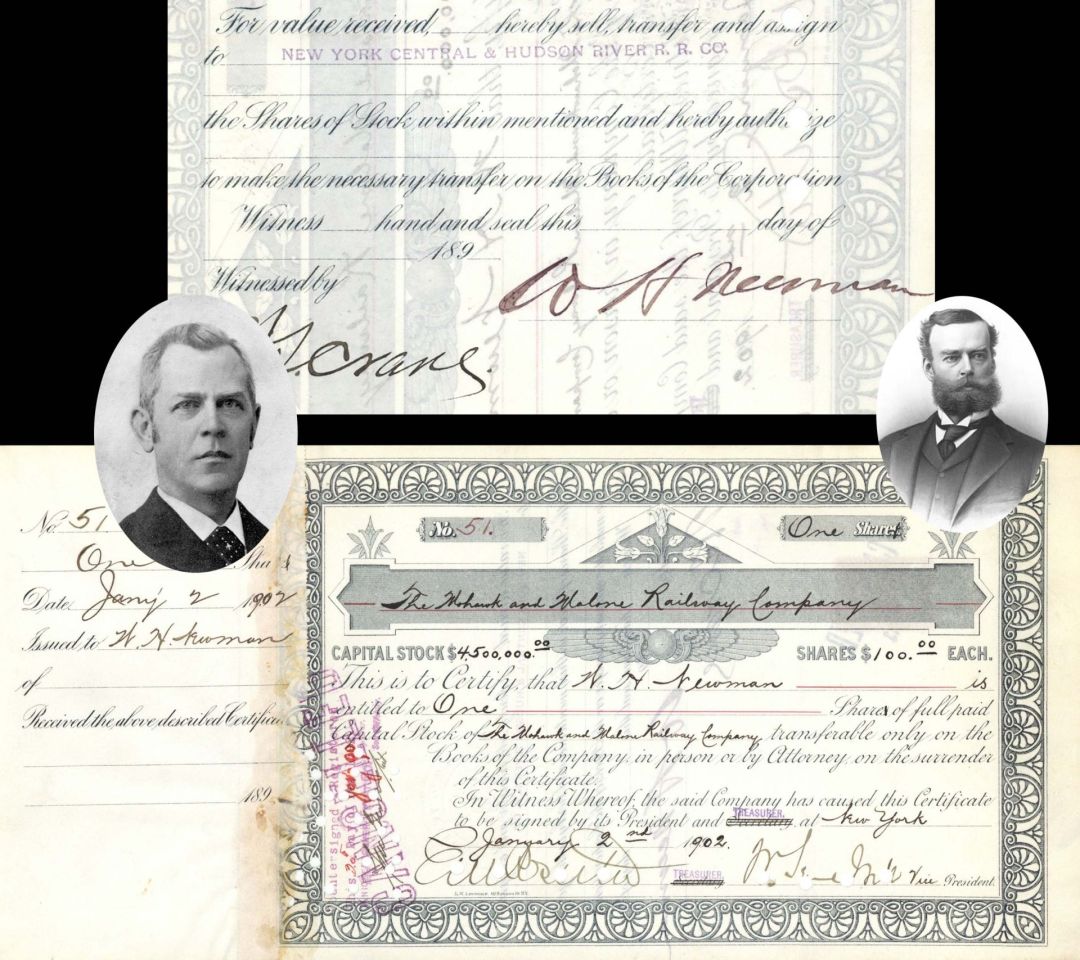 For value received, hereby sell, transfer and assign
to NEW YORK CENTRAL & HUDSON RIVER R. R. CO.
the Shares of Stock within mentioned and hereby authorize
to make the necessary transfer on the Books of the Corporation
Witness hand and seal this day of
189
Witnessed by
W H Newman
Crane
No. 51
One Sha
Date Jany 2 1902
Issued to W. H. Newman
of
Received the above described Certific
189
No. 51.
One Share
The Mohawk and Malone Railway Company
CAPITAL STOCK $4,500,000.00 SHARES $100.00 EACH.
This is to Certify, that W. H. Newman is
entitled to One Share of full paid
Capital Stock of The Mohawk and Malone Railway Company transferable only on the
Books of the Company, in person or by Attorney, on the surrender
of this Certificate.
In Witness Whereof, the said Company has caused this Certificate
to be signed by its President and TREASURER. at New York
January 2nd 1902.
TREASURER.
Vice President.